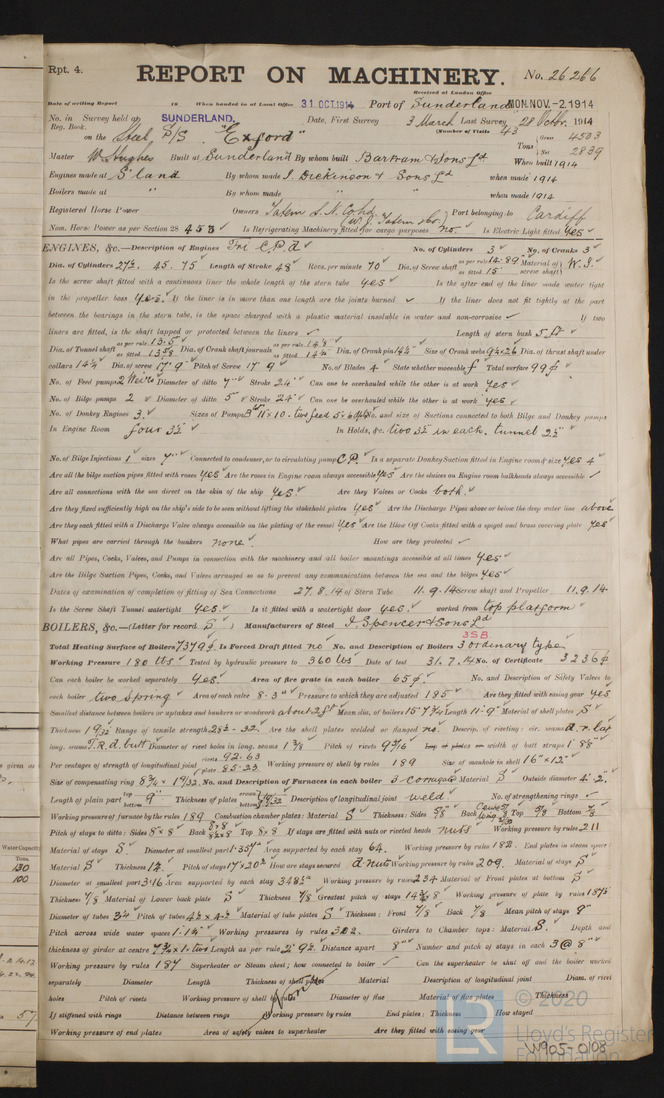 Rpt. 4.
REPORT ON MACHINERY. No. 26266
Received at London Office
Date of writing Report 19 When handed in at Local Office 31.OCT.1914 Port of Sunderland MON.NOV.-2.1914
No. in Reg. Book. Survey held at SUNDERLAND. Date, First Survey 3 March Last Survey 28 Octbr. 1914
(Number of Visits 43
on the Steel S/S "Exford" Tons Gross 4503 Net 2839
Master W. Hughes Built at Sunderland By whom built Bartram & Sons Ld When built 1914
Engines made at S'land By whom made J. Dickinson & Sons Ld when made 1914
Boilers made at " By whom made " when made 1914
Registered Horse Power Owners Tatem S.N. Co Ld (W.J. Tatem Port belonging to Cardiff
Nom. Horse Power as per Section 28 453 Is Refrigerating Machinery fitted for cargo purposes no. Is Electric Light fitted yes
ENGINES, &c.—Description of Engines Tri C.P.d No. of Cylinders 3 No. of Cranks 3
Dia. of Cylinders 27½. 45. 75 Length of Stroke 48 Revs. per minute 70 Dia. of Screw shaft as per rule 14.89 as fitted 15 Material of screw shaft W.I.
Is the screw shaft fitted with a continuous liner the whole length of the stern tube yes Is the after end of the liner made water tight
in the propeller boss yes. If the liner is in more than one length are the joints burned ✓ If the liner does not fit tightly at the part
between the bearings in the stern tube, is the space charged with a plastic material insoluble in water and non-corrosive ✓ If two
liners are fitted, is the shaft lapped or protected between the liners ✓ Length of stern bush 5 ft
Dia. of Tunnel shaft as per rule 13.5 as fitted 13 5/8 Dia. of Crank shaft journals as per rule as fitted 14¼ Dia. of Crank pin 14½ Size of Crank webs Dia. of thrust shaft under
collars 14¼ Dia. of screw 17' 9" Pitch of Screw 17' 9" No. of Blades 4 State whether moveable f Total surface 99 ф
No. of Feed pumps 2 Weirs Diameter of ditto 7" Stroke 24" Can one be overhauled while the other is at work yes
No. of Bilge pumps 2 Diameter of ditto 5" Stroke 24" Can one be overhauled while the other is at work yes
No. of Donkey Engines 3. Sizes of Pumps No. and size of Suctions connected to both Bilge and Donkey pumps
In Engine Room four 3½" In Holds, &c. two 3½ in each. tunnel 2½"
No. of Bilge Injections 1 sizes 7" Connected to condenser, or to circulating pump C.P. Is a separate Donkey Suction fitted in Engine room & size yes 4"
Are all the bilge suction pipes fitted with roses yes Are the roses in Engine room always accessible yes Are the sluices on Engine room bulkheads always accessible ✓
Are all connections with the sea direct on the skin of the ship yes. Are they Valves or Cocks both.
Are they fixed sufficiently high on the ship's side to be seen without lifting the stokehold plates yes Are the Discharge Pipes above or below the deep water line above
Are they each fitted with a Discharge Valve always accessible on the plating of the vessel yes Are the Blow Off Cocks fitted with a spigot and brass covering plate yes
What pipes are carried through the bunkers none How are they protected ✓
Are all Pipes, Cocks, Valves, and Pumps in connection with the machinery and all boiler mountings accessible at all times yes
Are the Bilge Suction Pipes, Cocks, and Valves arranged so as to prevent any communication between the sea and the bilges yes
Dates of examination of completion of fitting of Sea Connections 27.8.14 of Stern Tube 11.9.14 Screw shaft and Propeller 11.9.14
Is the Screw Shaft Tunnel watertight yes. Is it fitted with a watertight door yes. worked from top platform
BOILERS, &c.—(Letter for record S ) Manufacturers of Steel J. Spencer & Sons Ld
3SB
Total Heating Surface of Boilers 7379ф Is Forced Draft fitted no No. and Description of Boilers 3 ordinary type
Working Pressure 180 lbs Tested by hydraulic pressure to 360 lbs Date of test 31.7.14 No. of Certificate 3236
Can each boiler be worked separately yes. Area of fire grate in each boiler 65 ф No. and Description of Safety Valves to
each boiler two spring Area of each valve 8.3" Pressure to which they are adjusted 185 Are they fitted with easing gear yes
Smallest distance between boilers or uptakes and bunkers or woodwork about 2 ft Mean dia. of boilers 15' 7¾ Length 11'-9" Material of shell plates S
Thickness 1 9/32 Range of tensile strength 28½ - 32 Are the shell plates welded or flanged no. Descrip. of riveting: cir. seams d. r. lap
long. seams T.R.d.butt Diameter of rivet holes in long. seams 1 3/8 Pitch of rivets 9 9/16 Lap of plates or width of butt straps 1' 8 5/8"
Per centages of strength of longitudinal joint rivets 92.63 plate 85.23 Working pressure of shell by rules 189 Size of manhole in shell 16" × 12"
Size of compensating ring 8¾ × 1 9/32 No. and Description of Furnaces in each boiler 3 corrugated Material S Outside diameter 4' 2"
Length of plain part top bottom 9" Thickness of plates crown bottom Description of longitudinal joint weld No. of strengthening rings ✓
Working pressure of furnace by the rules 189 Combustion chamber plates: Material S Thickness: Sides 5/8 Back Top 5/8 Bottom 7/8
Pitch of stays to ditto: Sides 8 × 8 Back Top 8 × 8 If stays are fitted with nuts or riveted heads nuts Working pressure by rules 211
Material of stays S Diameter at smallest part 1.357 Area supported by each stay 64. Working pressure by rules 182. End plates in steam space:
Material S Thickness Pitch of stays 17" × 20½ How are stays secured d nuts Working pressure by rules 209. Material of stays S
Diameter at smallest part 3.16 Area supported by each stay 348½ Working pressure by rules 234 Material of Front plates at bottom S
Thickness 7/8 Material of Lower back plate S Thickness 7/8 Greatest pitch of stays Working pressure of plate by rules
Diameter of tubes 3¼ Pitch of tubes 4½ × 4½ Material of tube plates S Thickness: Front 7/8 Back 7/8 Mean pitch of stays 9"
Pitch across wide water spaces 1'.1½" Working pressures by rules 302. Girders to Chamber tops: Material S. Depth and
thickness of girder at centre 7¾ × 1. two Length as per rule 2' 9½. Distance apart 8" Number and pitch of stays in each 3 @ 8"
Working pressure by rules 187 Superheater or Steam chest; how connected to boiler ✓ Can the superheater be shut off and the boiler worked
separately Diameter Length Thickness of shell plates Material Description of longitudinal joint Diam. of rivet
holes Pitch of rivets Working pressure of shell by rules Diameter of flue Material of flue plates Thickness
None
If stiffened with rings Distance between rings Working pressure by rules End plates: Thickness How stayed
Working pressure of end plates Area of safety valves to superheater Are they fitted with easing gear
W905-0108
LR
© 2020
Lloyd's Register
Foundation
Water Capacity
Tons.
130
100
57.